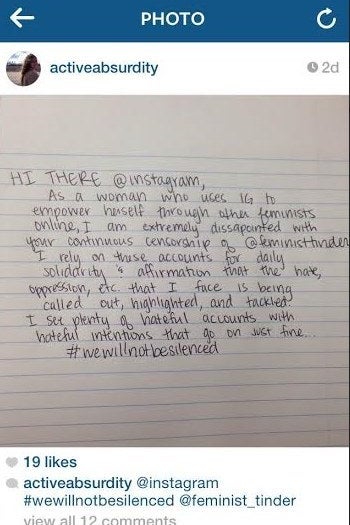 PHOTO
activeabsurdity
2d
HI THERE @instagram,
As a woman who uses IG to
empower herself through other feminists
online, I am extremely dissapointed with
your continuous censorship of @feministtinder
I rely on these accounts for daily
solidarity & affirmation that the hate,
oppression, etc. that I face is being
called out, highlighted, and tackled.
I see plenty of hateful accounts with
hateful intentions that go on just fine...
#wewillnotbesilenced
19 likes
activeabsurdity @instagram
#wewillnotbesilenced @feminist_tinder
view all 12 comments